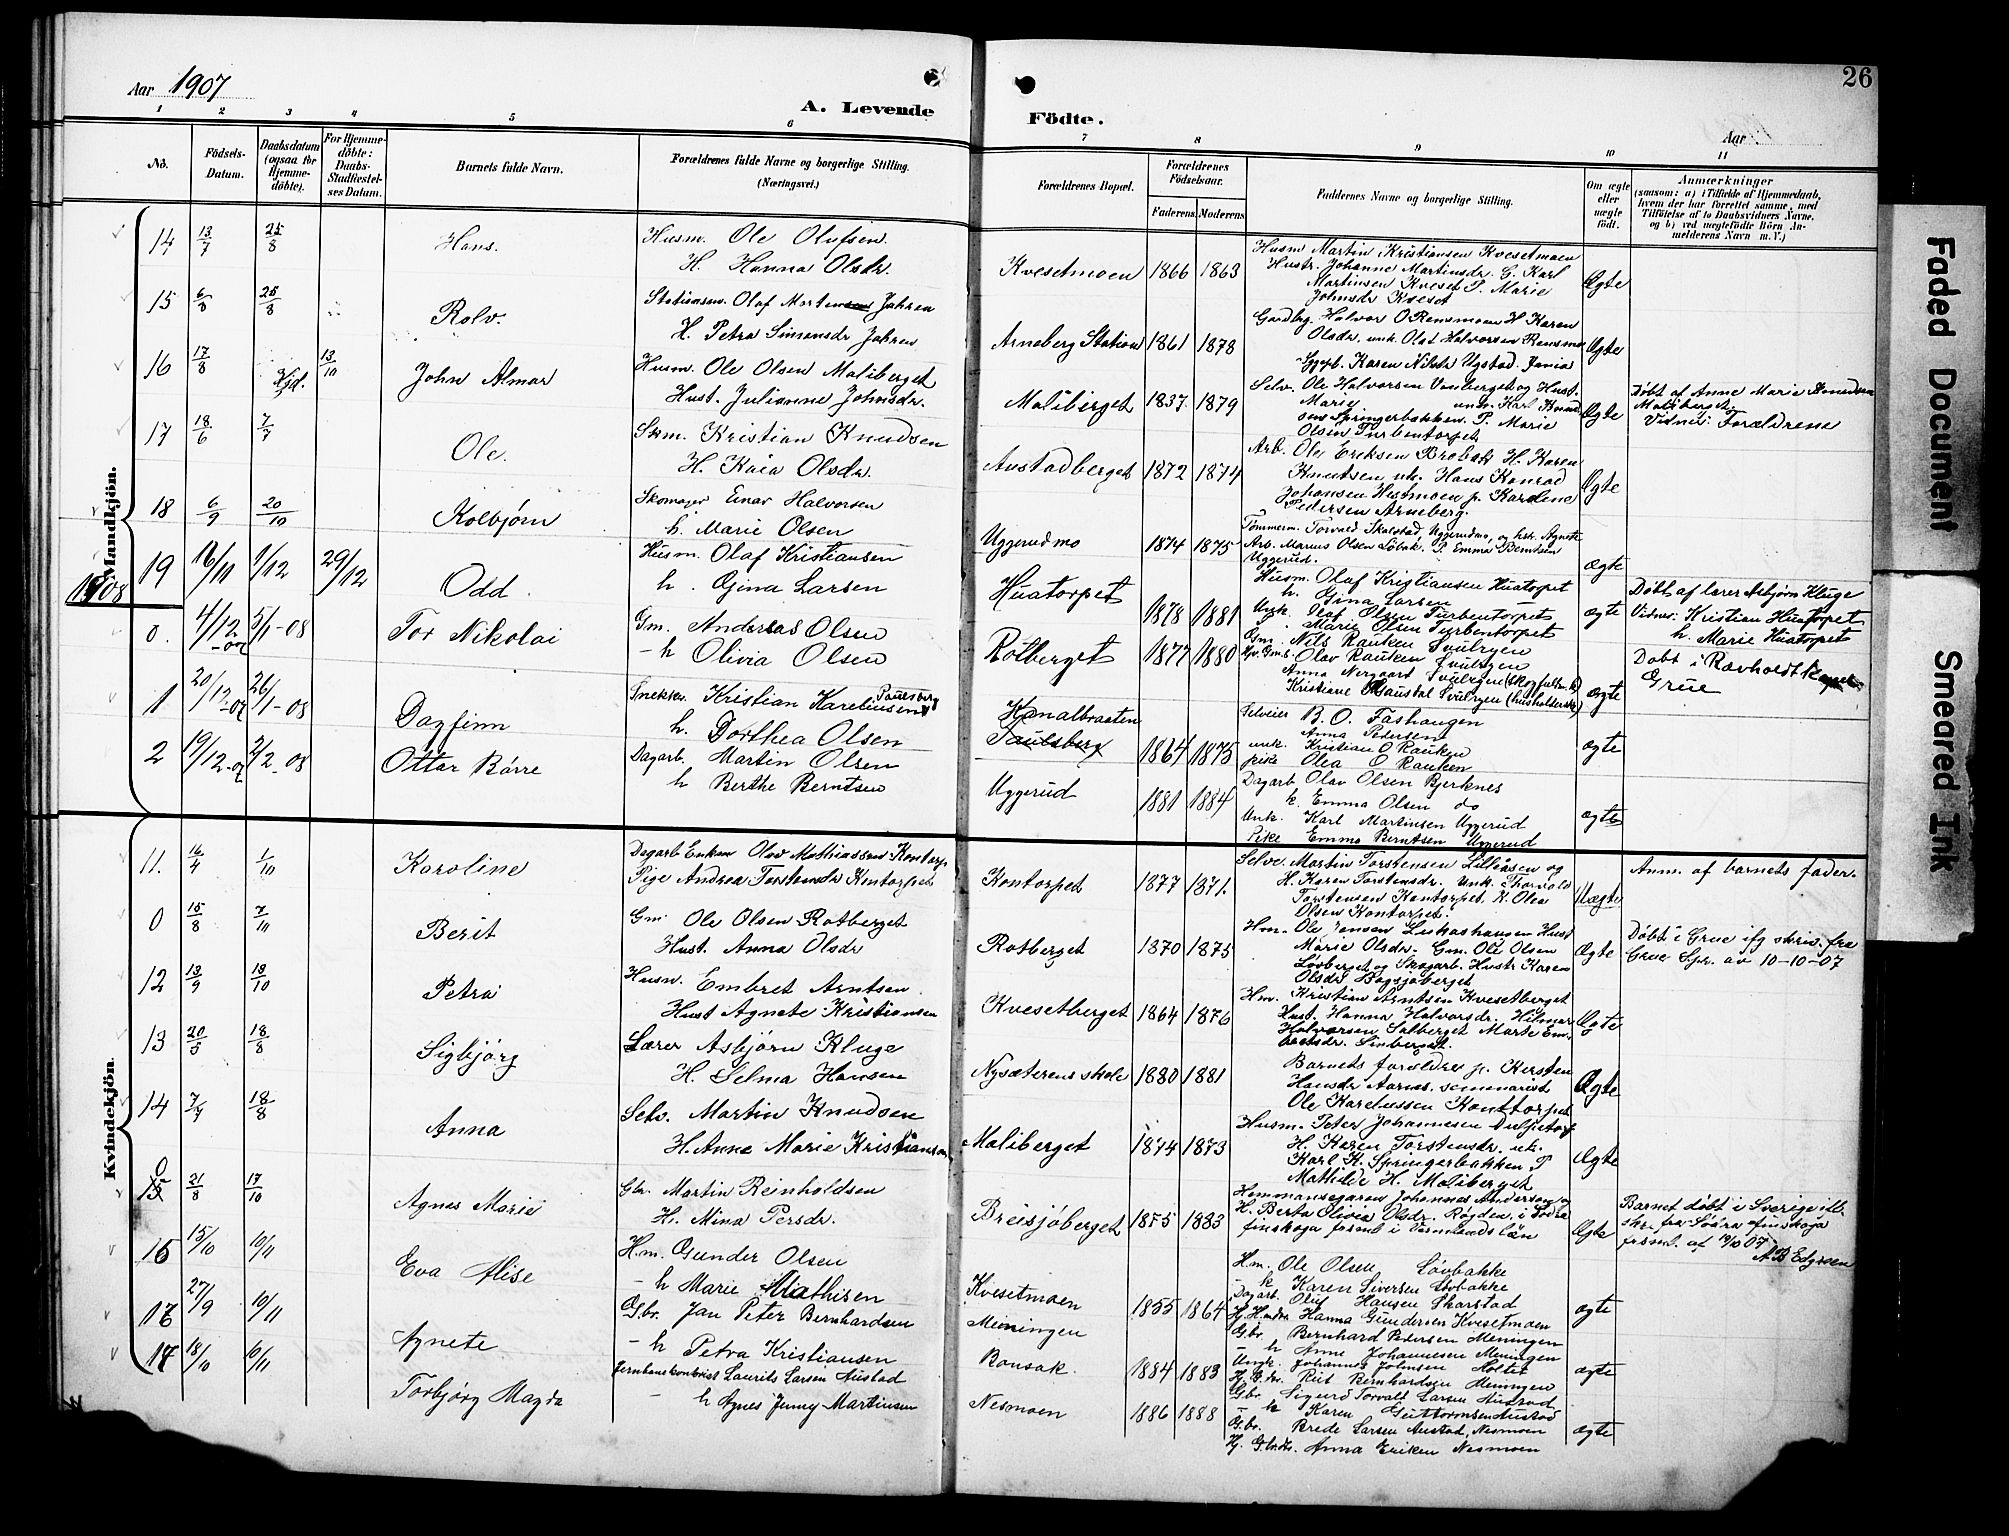 Aar 1907
A. Levende
Födte.
Aar
26
1 2 3 4 5 6 7 8 9 10 11
No. Födsels-Datum. Daabsdatum (ogsaa for Hjemmedöbte). For Hjemmedöbte: Daabs-Stadfæstelses Datum. Barnets fulde Navn. Forældrenes fulde Navne og borgerlige Stilling. (Næringsvei.) Forældrenes Bopæl. Forældrenes Födselsaar. Faderens. Moderens. Faddernes Navne og borgerlige Stilling. Om ægte eller uægte födt. Anmærkninger (saasom: a) i Tilfælde af Hjemmedaab, hvem der har forrettet samme, med Tilföielse af to Daabsvidners Navne, og b) ved uægtefödte Börn Anmelderens Navn m. V.)
Mandkjön.
14 13/7 25/8 Hans. Husm. Ole Olufsen
H. Hanna Olsdr.
Kvesetmoen 1866 1863 Husm Martin Kristiansen Kvesetmoen
Hustr. Johanne Martinsdr. G. Karl
Martinsen Kveset P. Marie
Johnsdr Kveset
Ægte
15 6/8 25/8 Rolv. Stationsm. Olaf Mortensen Jahren
H. Petra Simensdr Jahren
Arneberg Station 1861 1878 Gaardbr. Halvor O Remsmoen H Karen
Olsdr, unk. Olaf Halvorsen Remsmo
Karen Nilsdr Ugstad.
Ægte
16 17/8 Hjd. 13/10 John Almar Husm. Ole Olsen Maliberget
Hust. Julianne Johnsdr.
Maliberget 1837 1879 Selv. Ole Halvorsen Vonberget og Hust.
Marie unk. Karl Knud
sen Springerbakken. P. Marie
Olsen Turbentorpet
Ægte
Döbt af Anne Marie Knudsen
Maliberget.
Vidner: Forældrene
17 18/6 7/7 Ole. Skm. Kristian Knudsen
H. Kaia Olsdr.
Austadberget 1872 1874 Arb. Ole Eriksen Brobak H. Karen
Knutsen uk. Hans Konrad
Johansen Hestmoen p. Karoline
Pedersen Arneberg.
Ægte
18 6/9 20/10 Kolbjørn Skomager Einar Halvorsen
h. Marie Olsen
Uggerudmo 1874 1875 Tömmerm. Torvald Skalstad, Uggerudmo, og hstr. Agnete
Arb. Marius Olsen Löbak. P. Emma Berntsen
Uggerud.
ægte
19 16/11 1/12 29/12 Odd Husm. Olaf Kristiansen
h. Gina Larsen
Huatorpet 1878 1881 Husm. Olaf Kristiansen Huatorpet
h. Gina Larsen
Ungk. Olaf Olsen Turbentorpet
P. Marie Olsen Turbentorpet
ægte
Döbt af lærer Asbjörn Kluge
Vidner: Kristian Huatorpet
h. Marie Huatorpet
1908
0. 4/12-07 5/1-08 Tor Nikolai Gm. Andersas Olsen
- h Olivia Olsen
Rotberget 1877 1880 Gm. Nils Rauken Svulryen
Olav Rauken Svulryen
Anna Nergaard Svulryen
Kristiane Svulryen (husholderske)
ægte
Döbt i Ravholdt Kapel
Grue
1 20/12-07 26/1-08 Dagfinn Snekker Kristian Kareliusen Paulsberg
h. Dorthea Olsen
Kanalbraaten
Paulsberg 1864 1875 Selveier B. O. Fashaugen
Anna Pedersen
unk. Kristian O Rauken
pike Olea O Rauken
ægte
2 19/12-07 2/2-08 Ottar Börre Dagarb. Martin Olsen
h Berthe Berntsen
Uggerud 1881 1884 Dagarb Olav Olsen Bjerknes
k. Emma Olsen do
Unk. Karl Martinsen Uggerud
Pike Emma Berntsen Uggerud
ægte
Kvindekjön
11. 16/4 1/10 Karoline Dagarb Enkem Olav Mathiassen Kontorp
Pige Andrea Torstensdr Kontorpet
Kontorpet 1877 1871. Selve. Martin Torstensen Lillaasen og
H. Karen Torstensdr. Unk. Thorvald
Torstensen Kontorpet. K. Olea
Olsen Kontorpet.
Uægte
Anm. af barnets fader.
0 15/8 7/11 Berit Gm. Ole Olsen Rotberget
Hust. Anna Olsdr
Rotberget 1870 1875 Hm. Ole Jensen Lukashaugen Hust
Marie Olsdr. Gm. Ole Olsen
Lövberget og Skogarb. Hustr Karen
Olsdr Bogsjöberget
Ægte
Döbt i Grue ifg skriv. fra
Grue Spr. av 10-10-07
12 13/9 13/10 Petra Husm. Embret Arntsen
Hust Agnete Kristiansen
Kvesetberget 1864 1876 Hm. Kristian Arntsen Kvesetberget
Hust. Hanna Halvorsdr. Hilmar
Halvorsen Solberget Marte Em-
bretsdr. Linberget.
Ægte
13 20/5 18/8 Sigbjörg Lærer Asbjörn Kluge
H. Selma Hansen
Nysæterens skole 1880 1881 Barnets forældre p. Kersten
Hansdr Aarnes, seminarist
Ole Kareliussen Konttorpet
Ægte
14 7/7 18/8 Anna Selv. Martin Knudsen
H. Anna Marie Kristiansen
Maliberget 1874 1873 Husm. Peter Johannesen
H. Karen Torstensdr. uk.
Karl K. Springerbakken P
Mathilde H. Maliberget
Ægte
0
15 21/8 17/10 Agnes Marie Gbr. Martin Reinholdsen
H. Mina Persdr.
Breisjöberget 1855 1883 Hemmansegaren Johannes Anderson og
H. Berta Olivia Olsdr. Rögden, i Södra
finskoga forsml i Värmlands Län
Ægte
Barnet döbt i Sverige ifl.
skr. fra Södra finskoga
forsml. af 19/10 07
15 15/10 10/11 Eva Alise Hm. Gunder Olsen
- h Marie Mathisen
Kvesetmoen 1855 1864 Hm. Ole Olsen Lövbakke
- k Karen Siversen Lövbakke
Dagarb. Oluf Hansen Skarstad
Hanna Gundersen Kvesetmoen
ægte
16 27/9 10/11 Agnete Gbr. Jan Peter Bernhardsen
- h Petra Kristiansen
Meningen
Bonsak 1884 1883 Gbr. Bernhard Pedersen Meningen
- h Anne Johannesen Meningen
Ungk. Johannes Johnsen Holtet
Rut Bernhardsen Meningen
ægte
17 18/10 10/11 Torbjörg Magda Jernbanekontrist Laurits Larsen Austad
- h Agnes Jenny Martinsen
Nesmoen 1886 1888 Gbr. Sigurd Torvald Larsen Austad
- k Karen Guttormsen Austad
Gbr. Brede Larsen Austad, Nesmoen
Anna Eriksen Nesmoen
ægte
Faded Document
Smeared Ink